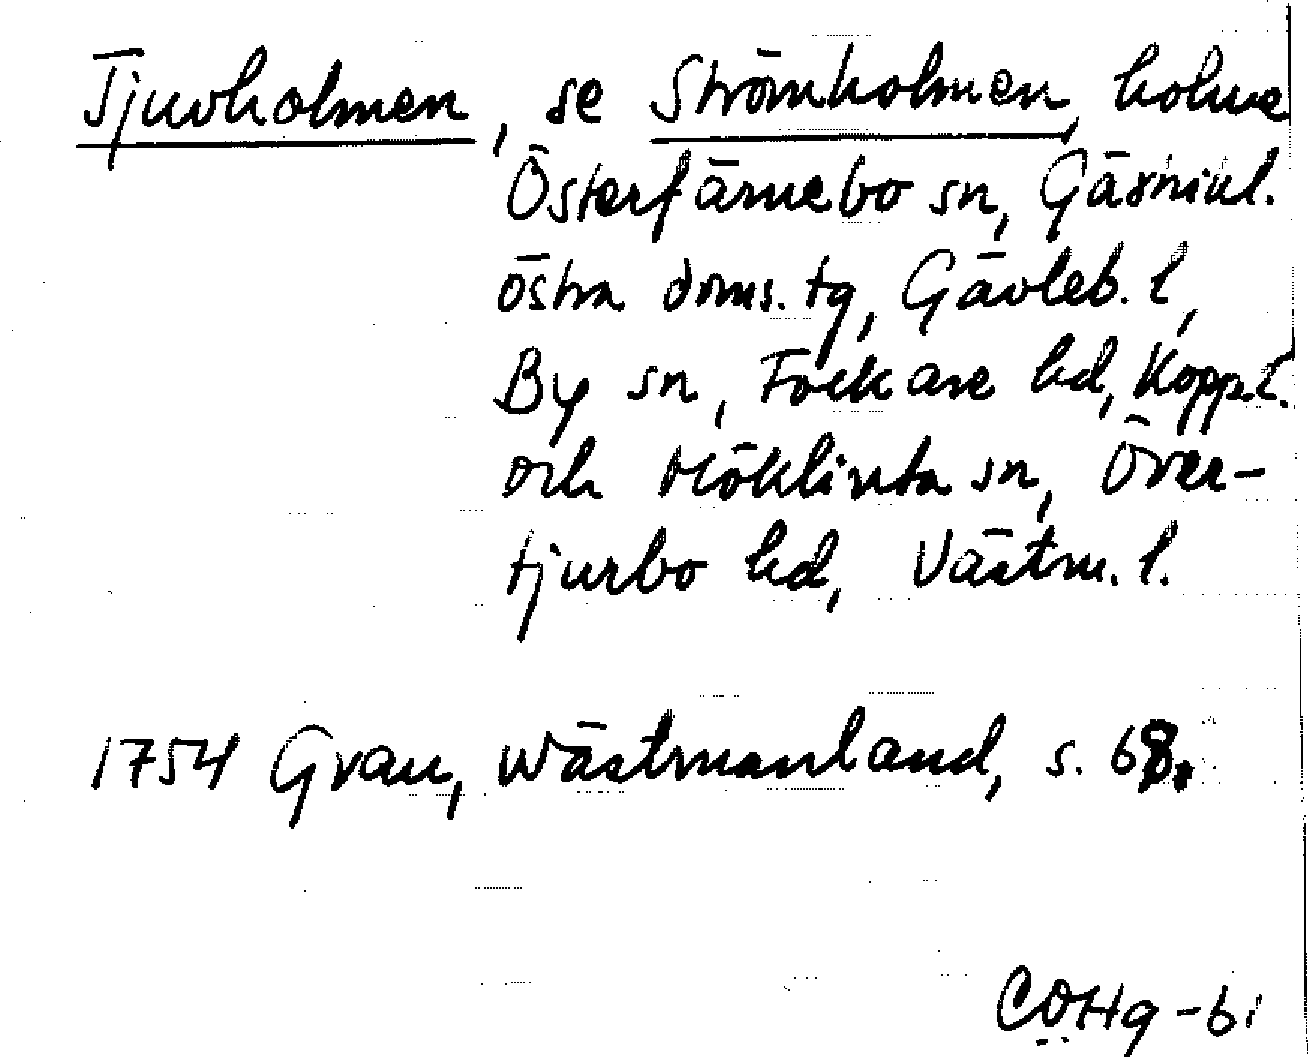 Tjuvholmen, se Strömholmen, holme
Österfärnebo sn, Gästrikl.
östra doms. tg, Gävleb. l,
By sn, Folkare hd, Kopp. l.
och Möklinta sn, Över-
tjurbo hd, Västm. l.
1754 Grau, Wästmanland, s. 68.